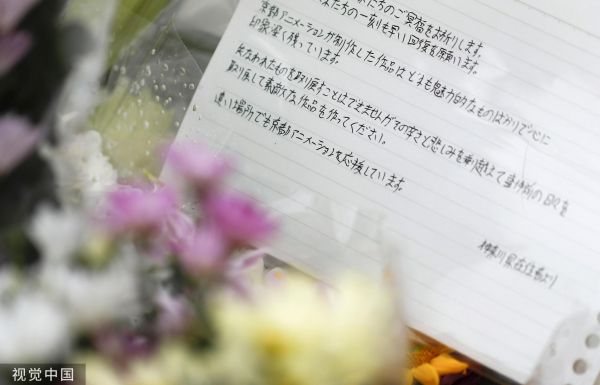 たちのご冥福をお祈りします
たちの一刻も早い回復を願います。
京都アニメーションが制作した作品はどれも魅力的なものばかりで心に
印象深く残っています。
失なわれたものを取り戻すことはできませんがその辛さと悲しみを乗り越えて
取り戻して素敵な作品を作ってください。
遠い場所でも京都アニメーションを応援しています。
神奈川県在住者より
視觉中国